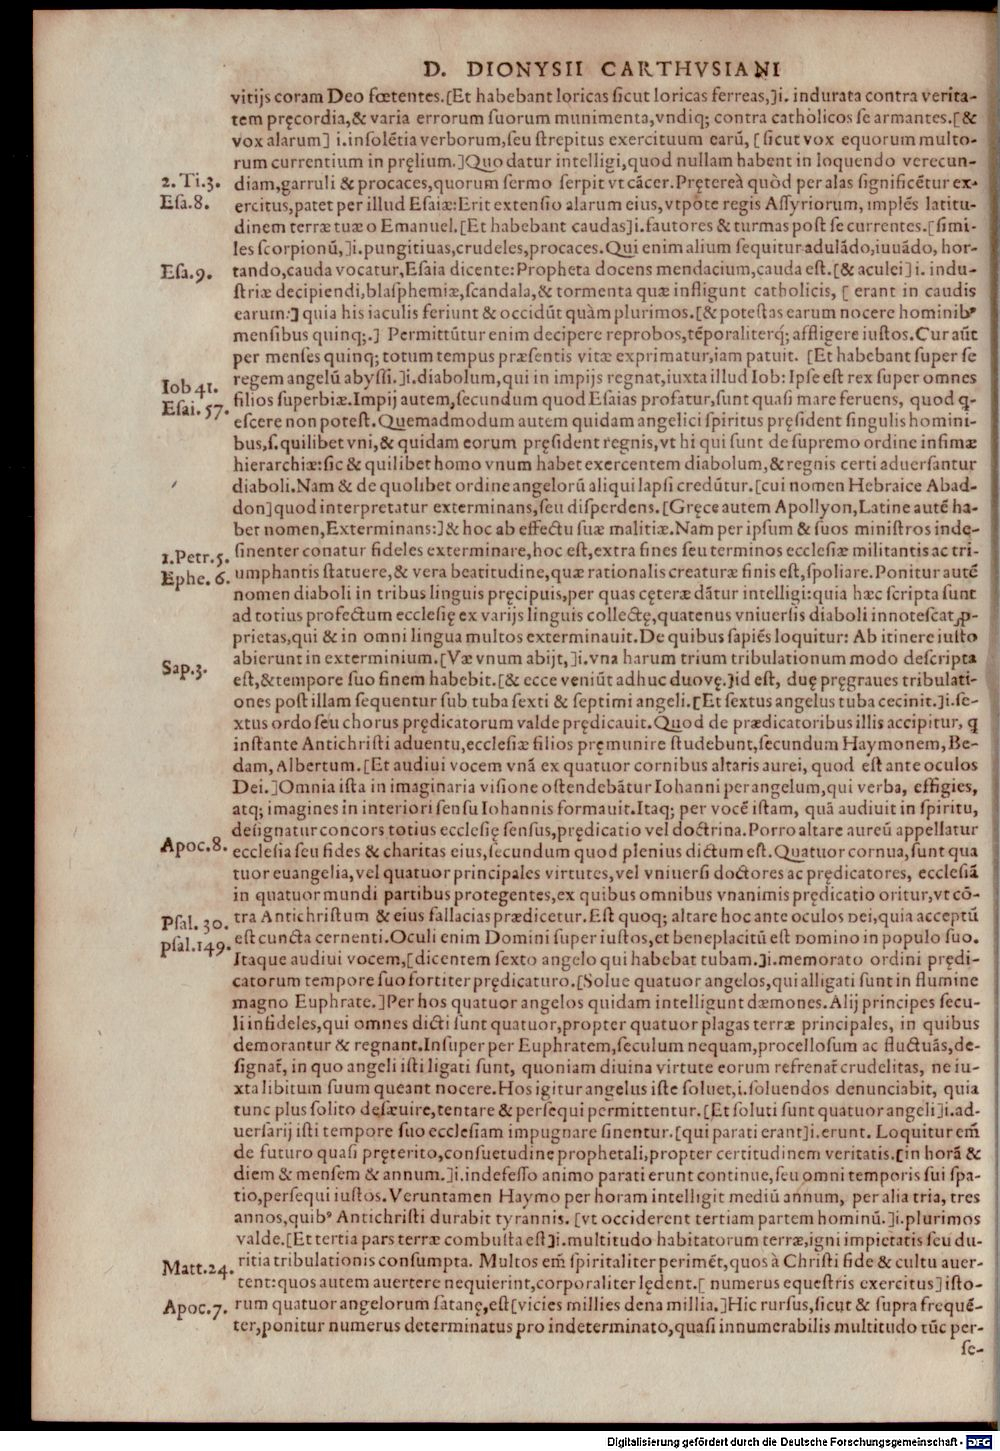 D. DIONYSII CARTHVSIANI
vitijs coram Deo fœtentes.[Et habebant loricas ſicut loricas ferreas,]i. indurata contra verita-
tem pręcordia,& varia errorum ſuorum munimenta,vndiq; contra catholicos ſe armantes.[&
vox alarum] i.inſolẽtia verborum,ſeu ſtrepitus exercituum earũ, [ſicut vox equorum multo-
rum currentium in pręlium.]Quo datur intelligi,quod nullam habent in loquendo verecun-
2. Ti.3. diam,garruli & procaces,quorum ſermo ſerpit vt cãcer.Prętereà quòd per alas ſignificẽtur ex-
Eſa.8. ercitus,patet per illud Eſaiæ:Erit extenſio alarum eius,vtpote regis Aſſyriorum, implẽs latitu-
dinem terræ tuæ o Emanuel.[Et habebant caudas]i.fautores & turmas poſt ſe currentes.[ſimi-
les ſcorpionũ,]i.pungitiuas,crudeles,procaces.Qui enim alium ſequitur adulãdo,iuuãdo, hor-
Eſa.9. tando,cauda vocatur,Eſaia dicente:Propheta docens mendacium,cauda eſt.[& aculei] i. indu-
ſtriæ decipiendi,blaſphemiæ,ſcandala,& tormenta quæ infligunt catholicis, [ erant in caudis
earum:] quia his iaculis feriunt & occidũt quàm plurimos.[& poteſtas earum nocere hominibꝰ
menſibus quinq;.] Permittũtur enim decipere reprobos,tẽporaliterq́; affligere iuſtos.Cur aũt
per menſes quinq; totum tempus præſentis vitæ exprimatur,iam patuit. [Et habebant ſuper ſe
Iob 41. regem angelũ abyſſi.]i.diabolum,qui in impijs regnat,iuxta illud Iob: Ipſe eſt rex ſuper omnes
Eſai. 57. filios ſuperbiæ.Impij autem,ſecundum quod Eſaias profatur,ſunt quaſi mare feruens, quod q̃-
eſcere non poteſt.Quemadmodum autem quidam angelici ſpiritus pręſident ſingulis homini-
bus,ſ.quilibet vni,& quidam eorum pręſident regnis,vt hi qui ſunt de ſupremo ordine infimæ
hierarchiæ:ſic & quilibet homo vnum habet exercentem diabolum,& regnis certi aduerſantur
diaboli.Nam & de quolibet ordine angelorũ aliqui lapſi credũtur.[cui nomen Hebraice Abad-
don]quod interpretatur exterminans,ſeu diſperdens.[Gręce autem Apollyon,Latine autẽ ha-
ber nomen,Exterminans:]& hoc ab effectu ſuæ malitiæ.Nam per ipſum & ſuos miniſtros inde-
1.Petr.5. ſinenter conatur fideles exterminare,hoc eſt,extra fines ſeu terminos eccleſiæ militantis ac tri-
Ephe. 6. umphantis ſtatuere,& vera beatitudine,quæ rationalis creaturæ finis eſt,ſpoliare.Ponitur autẽ
nomen diaboli in tribus linguis pręcipuis,per quas cęteræ dãtur intelligi:quia hæc ſcripta ſunt
ad totius profectum eccleſię ex varijs linguis collectę,quatenus vniuerſis diaboli innoteſcat ꝓ-
prietas,qui & in omni lingua multos exterminauit.De quibus ſapiẽs loquitur: Ab itinere iuſto
Sap.3. abierunt in exterminium.[Væ vnum abijt,]i.vna harum trium tribulationum modo deſcripta
eſt,&tempore ſuo finem habebit.[& ecce veniũt adhuc duovę.]id eſt, duę pręgraues tribulati-
ones poſt illam ſequentur ſub tuba ſexti & ſeptimi angeli.[Et ſextus angelus tuba cecinit.]i.ſe-
xtus ordo ſeu chorus prędicatorum valde prędicauit.Quod de prædicatoribus illis accipitur, q̃
inſtante Antichriſti aduentu,eccleſiæ filios pręmunire ſtudebunt,ſecundum Haymonem, Be-
dam, Albertum.[Et audiui vocem vnã ex quatuor cornibus altaris aurei, quod eſt ante oculos
Dei.]Omnia iſta in imaginaria viſione oſtendebãtur Iohanni per angelum,qui verba, effigies,
atq; imagines in interiori ſenſu Iohannis formauit.Itaq; per vocẽ iſtam, quã audiuit in ſpiritu,
deſignatur concors totius eccleſię ſenſus,prędicatio vel doctrina.Porro altare aureũ appellatur
Apoc.8. eccleſia ſeu fides & charitas eius,ſecundum quod plenius dictum eſt.Quatuor cornua,ſunt qua
tuor euangelia,vel quatuor principales virtutes,vel vniuerſi doctores ac prędicatores, eccleſiã
in quatuor mundi partibus protegentes,ex quibus omnibus vnanimis prędicatio oritur,vt cõ-
Pſal. 30. tra Antichriſtum & eius fallacias prædicetur.Eſt quoq; altare hoc ante oculos Dei,quia acceptũ
pſal.149. eſt cuncta cernenti.Oculi enim Domini ſuper iuſtos,et beneplacitũ eſt Domino in populo ſuo.
Itaque audiui vocem,[dicentem ſexto angelo qui habebat tubam.]i.memorato ordini prędi-
catorum tempore ſuo fortiter prędicaturo.[Solue quatuor angelos,qui alligati ſunt in flumine
magno Euphrate.]Per hos quatuor angelos quidam intelligunt dæmones.Alij principes ſecu-
li infideles,qui omnes dicti ſunt quatuor,propter quatuor plagas terræ principales, in quibus
demorantur & regnant.Inſuper per Euphratem,ſeculum nequam,procelloſum ac fluctuãs,de-
ſignat̃, in quo angeli iſti ligati ſunt, quoniam diuina virtute eorum refrenat̃ crudelitas, ne iu-
xta libitum ſuum queant nocere.Hos igitur angelus iſte ſoluet,i.ſoluendos denunciabit, quia
tunc plus ſolito deſæuire,tentare & perſequi permittentur.[Et ſoluti ſunt quatuor angeli]i.ad-
uerſarij iſti tempore ſuo eccleſiam impugnare ſinentur.[qui parati erant]i.erunt. Loquitur em̃
de futuro quaſi pręterito,conſuetudine prophetali,propter certitudinem veritatis.[in horã &
diem & menſem & annum.]i.indefeſſo animo parati erunt continue,ſeu omni temporis ſui ſpa-
tio,perſequi iuſtos.Veruntamen Haymo per horam intelligit mediũ annum, per alia tria, tres
annos,quibꝰ Antichriſti durabit tyrannis. [vt occiderent tertiam partem hominũ.]i.plurimos
valde.[Et tertia pars terræ combuſta eſt]i.multitudo habitatorum terræ,igni impietatis ſeu du-
Matt.24. ritia tribulationis conſumpta. Multos em̃ ſpiritaliter perimẽt,quos à Chriſti fide & cultu auer-
tent:quos autem auertere nequierint,corporaliter lędent.[ numerus equeſtris exercitus] iſto-
Apoc.7. rum quatuor angelorum ſatanę,eſt[vicies millies dena millia.]Hic rurſus,ſicut & ſupra frequẽ-
ter,ponitur numerus determinatus pro indeterminato,quaſi innumerabilis multitudo tũc per-
ſe-
Digitalisierung gefördert durch die Deutsche Forschungsgemeinschaft - DFG